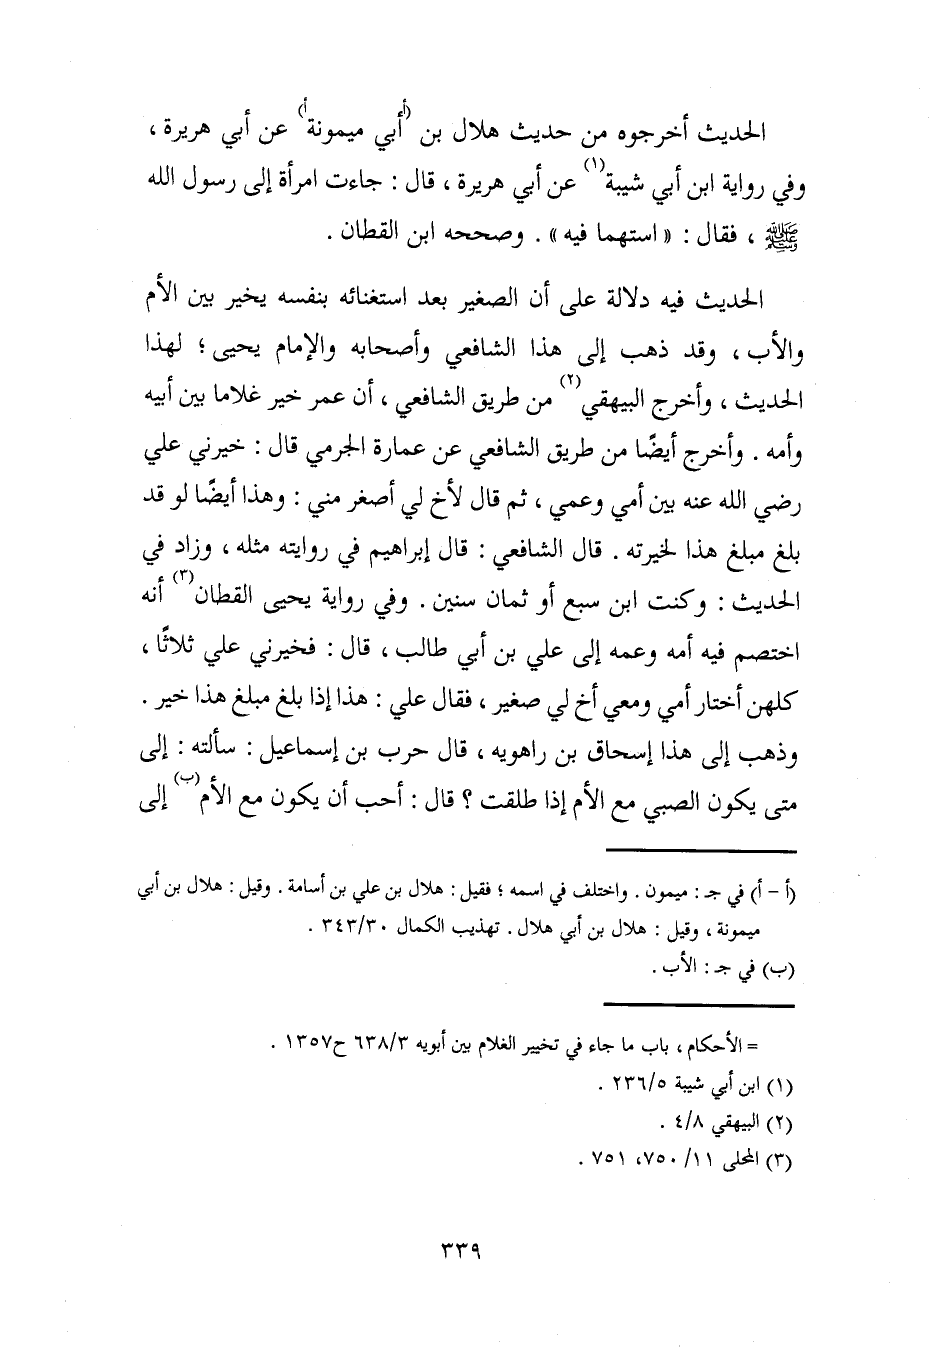 الحديث أخرجوه من حديث هلال بن (أ)أبي ميمونة(أ) عن أبي هريرة ،
وفي رواية ابن أبي شيبة(١) عن أبي هريرة ، قال : جاءت امرأة إلى رسول الله
ﷺ ، فقال : « استهما فيه » . وصححه ابن القطان .
الحديث فيه دلالة على أن الصغير بعد استغنائه بنفسه يخير بين الأم
والأب ، وقد ذهب إلى هذا الشافعي وأصحابه والإمام يحيى ؛ لهذا
الحديث ، وأخرج البيهقي(٢) من طريق الشافعي ، أن عمر خير غلاما بين أبيه
وأمه . وأخرج أيضًا من طريق الشافعي عن عمارة الجرمي قال : خيرني علي
رضي الله عنه بين أمي وعمي ، ثم قال لأخ لي أصغر مني : وهذا أيضًا لو قد
بلغ مبلغ هذا لخيرته . قال الشافعي : قال إبراهيم في روايته مثله ، وزاد في
الحديث : وكنت ابن سبع أو ثمان سنين . وفي رواية يحيى القطان(٣) أنه
اختصم فيه أمه وعمه إلى علي بن أبي طالب ، قال : فخيرني علي ثلاثًا ،
كلهن أختار أمي ومعي أخ لي صغير ، فقال علي : هذا إذا بلغ مبلغ هذا خير .
وذهب إلى هذا إسحاق بن راهويه ، قال حرب بن إسماعيل : سألته : إلى
متى يكون الصبي مع الأم إذا طلقت ؟ قال : أحب أن يكون مع الأم(ب) إلى
(أ - أ) في جـ : ميمون . واختلف في اسمه ؛ فقيل : هلال بن علي بن أسامة . وقيل : هلال بن أبي
ميمونة ، وقيل : هلال بن أبي هلال . تهذيب الكمال ٣٤٣/٣٠ .
(ب) في جـ : الأب .
= الأحكام ، باب ما جاء في تخيير الغلام بين أبويه ٦٣٨/٣ ح١٣٥٧ .
(١) ابن أبي شيبة ٢٣٦/٥ .
(٢) البيهقي ٤/٨ .
(٣) المحلى ١١/ ٧٥٠، ٧٥١ .
٣٣٩